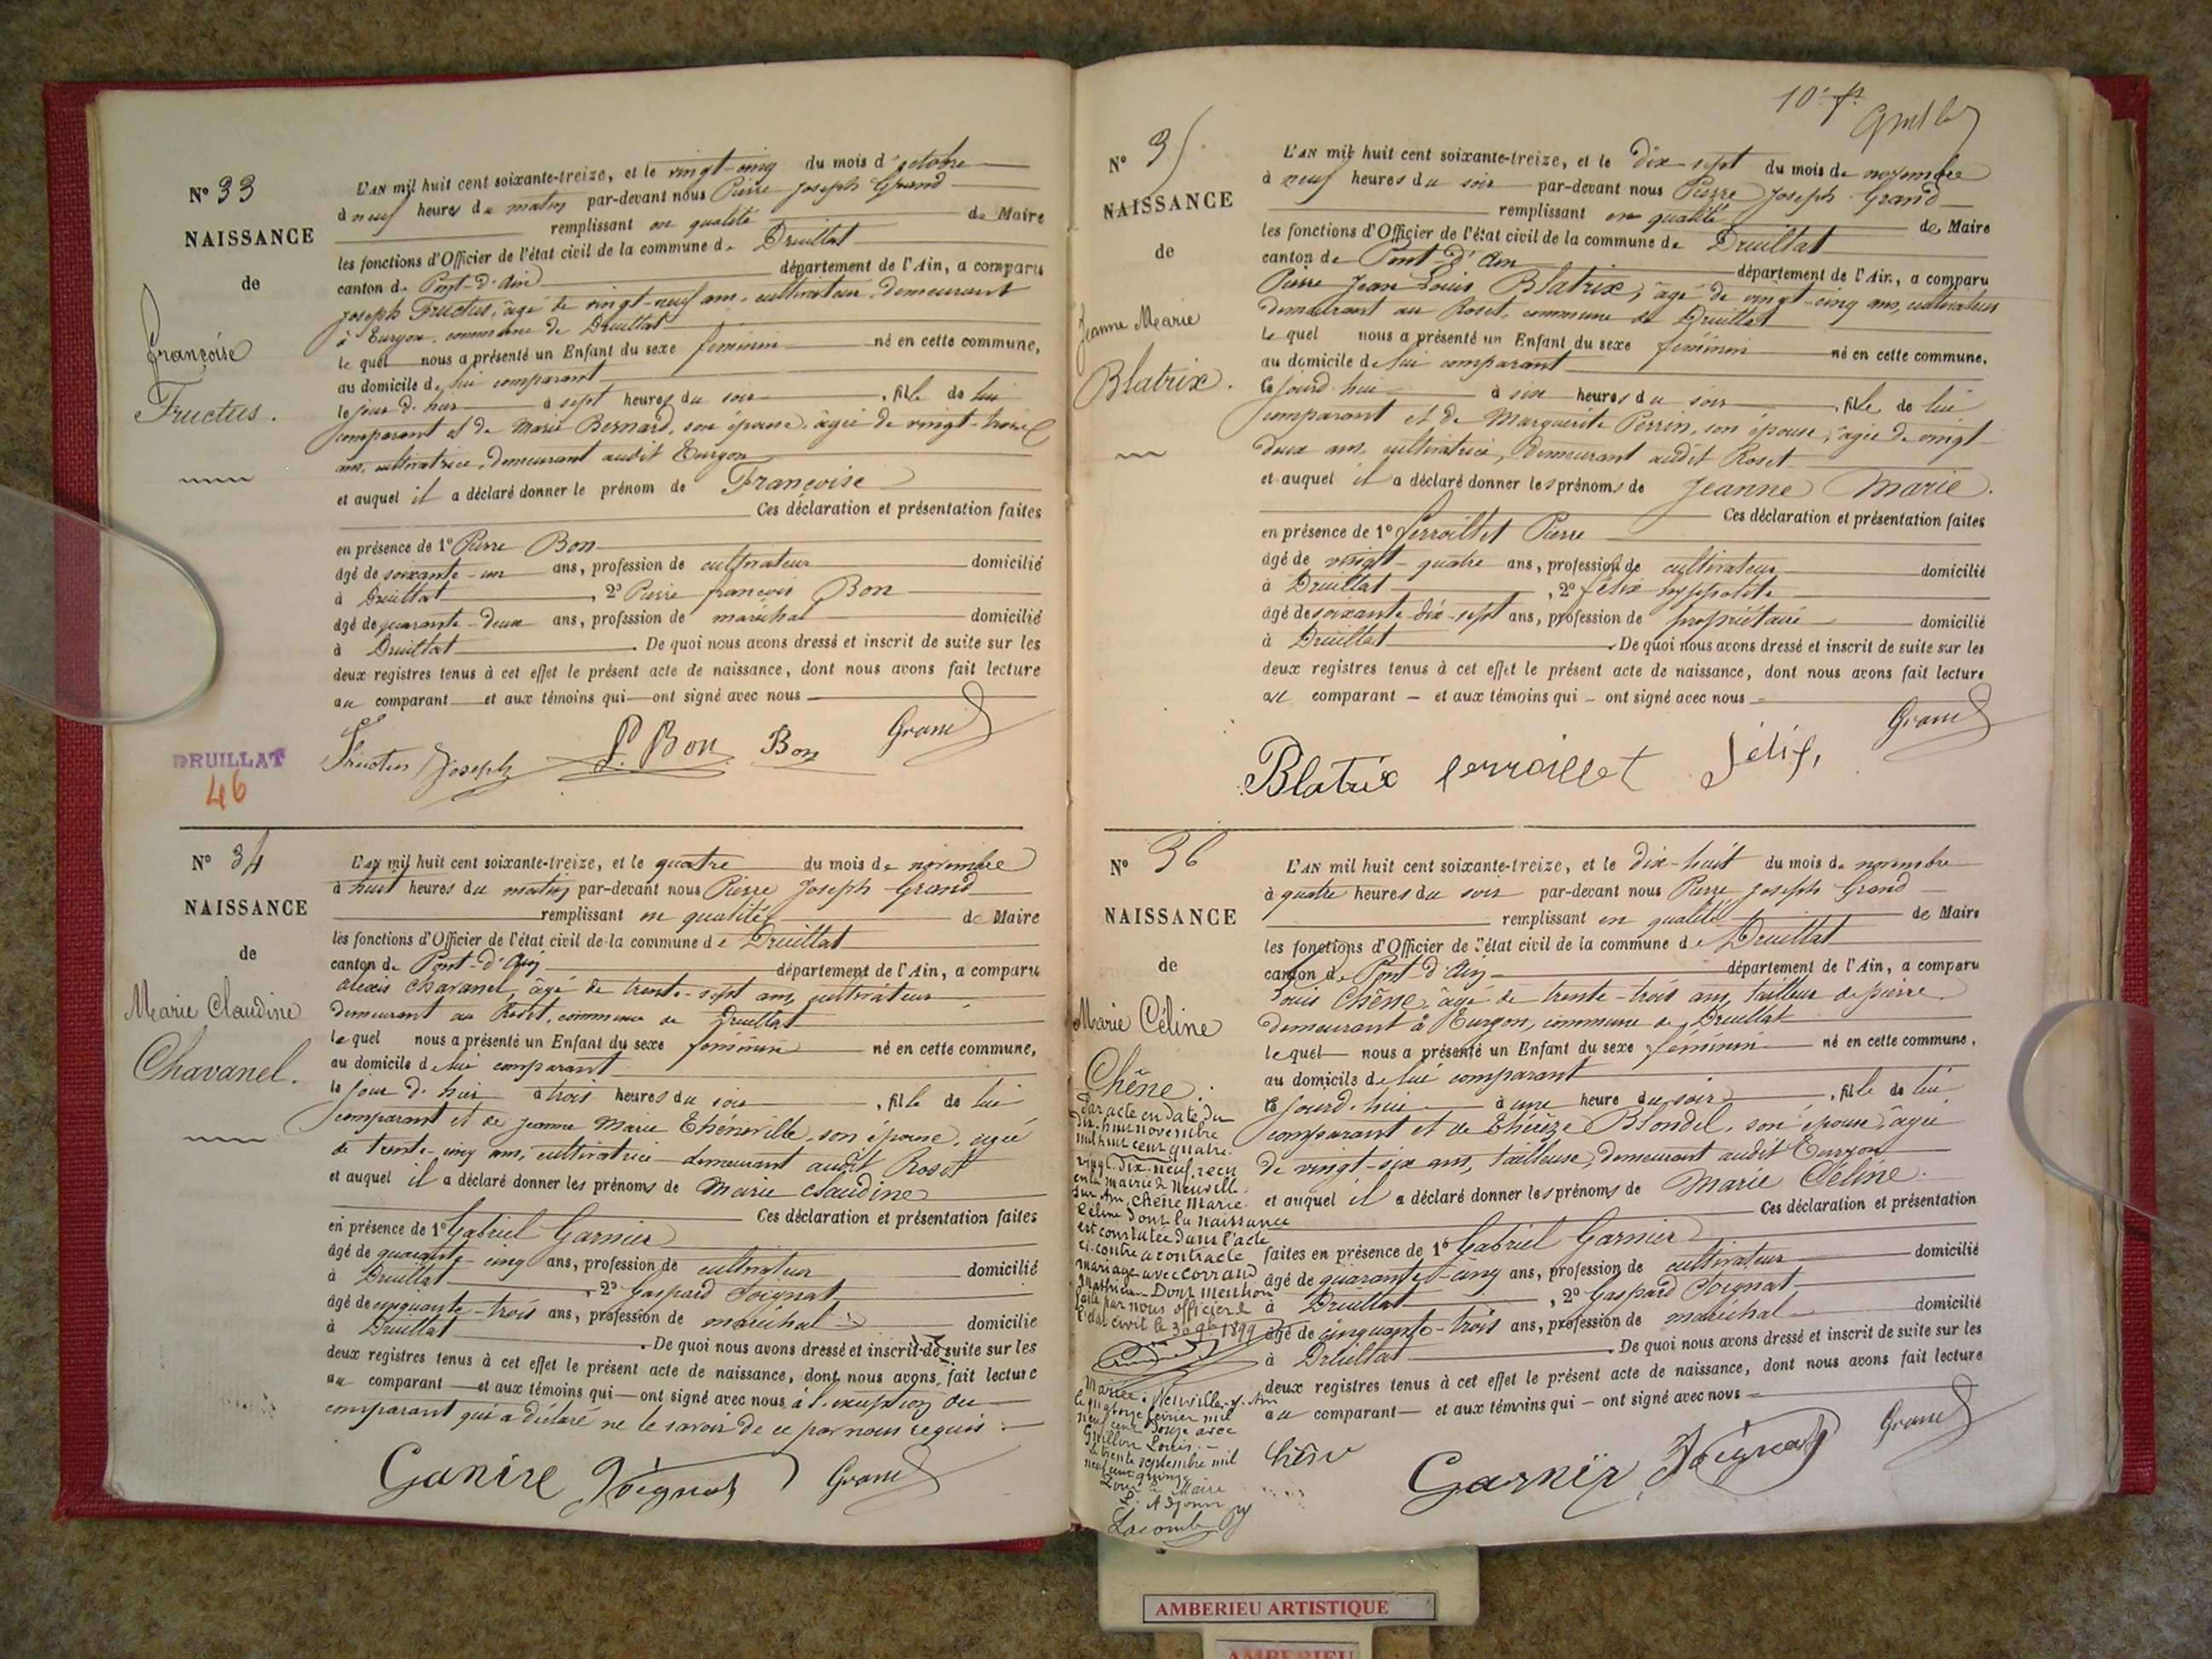 N° 33
NAISSANCE
de
Françoise
Fructus.
L'AN mil huit cent soixante-treize, et le vingt-cinq du mois d'octobre
à neuf heures du matin par-devant nous Pierre Joseph Grand
remplissant en qualité de Maire
les fonctions d'Officier de l'état civil de la commune de Druillat
canton de Pont-d'Ain département de l'Ain, a comparu
Joseph Fructus, âgé de vingt-neuf ans, cultivateur, demeurant
à Turgon, commune de Druillat
le quel nous a présenté un Enfant du sexe féminin né en cette commune,
au domicile de lui comparant
le jour d'hier à sept heures du soir, fille de lui
comparant et de Marie Bernard, son épouse, âgée de vingt-trois
ans, cultivatrice, demeurant audit Turgon
et auquel il a déclaré donner le prénom de Françoise
Ces déclaration et présentation faites
en présence de 1° Pierre Bon
âgé de soixante-un ans, profession de cultivateur domicilié
à Druillat, 2° Pierre françois Bon
âgé de quarante-deux ans, profession de maréchal domicilié
à Druillat. De quoi nous avons dressé et inscrit de suite sur les
deux registres tenus à cet effet le présent acte de naissance, dont nous avons fait lecture
au comparant et aux témoins qui ont signé avec nous
Fructus Joseph P. Bon Bon Grand
DRUILLAT
46
N° 34
NAISSANCE
de
Marie Claudine
Chavanel.
L'AN mil huit cent soixante-treize, et le quatre du mois de novembre
à huit heures du matin par-devant nous Pierre Joseph Grand
remplissant en qualité de Maire
les fonctions d'Officier de l'état civil de la commune de Druillat
canton de Pont-d'Ain département de l'Ain, a comparu
alexis Chavanel, âgé de trente-sept ans, cultivateur
demeurant au Roset, commune de Druillat
le quel nous a présenté un Enfant du sexe féminin né en cette commune,
au domicile de lui comparant
le jour d'hier à trois heures du soir, fille de lui
comparant et de jeanne Marie Thénerille, son épouse, agée
de trente-cinq ans, cultivatrice demeurant audit Roset
et auquel il a déclaré donner les prénoms de Marie Claudine
Ces déclaration et présentation faites
en présence de 1° Gabriel Garnier
âgé de quarante-cinq ans, profession de cultivateur domicilié
à Druillat, 2° Gaspard Joignat
âgé de cinquante-trois ans, profession de maréchal domicilié
à Druillat. De quoi nous avons dressé et inscrit de suite sur les
deux registres tenus à cet effet le présent acte de naissance, dont nous avons fait lecture
au comparant et aux témoins qui ont signé avec nous à l'exception du
comparant qui a déclaré ne le savoir de ce par nous requis.
Ganire Joignat Grand
10e f.
N° 35
NAISSANCE
de
Jeanne Marie
Blatrix.
L'AN mil huit cent soixante-treize, et le dix-sept du mois de novembre
à neuf heures du soir par-devant nous Pierre Joseph Grand
remplissant en qualité de Maire
les fonctions d'Officier de l'état civil de la commune de Druillat
canton de Pont-d'Ain département de l'Ain, a comparu
Pierre Jean Louis Blatrix, âgé de vingt-cinq ans, cultivateur
demeurant au Roset, commune de Druillat
le quel nous a présenté un Enfant du sexe féminin né en cette commune.
au domicile de lui comparant
le jourd'hui à six heures du soir, fille de lui
comparant et de Marguerite Perrin, son épouse, agée de vingt
deux ans, cultivatrice, demeurant audit Roset
et auquel il a déclaré donner les prénoms de Jeanne Marie.
Ces déclaration et présentation faites
en présence de 1° Perroillet Pierre
âgé de vingt-quatre ans, profession de cultivateur domicilié
à Druillat, 2° félix hyppolite
âgé de soixante-dix-sept ans, profession de propriétaire domicilié
à Druillat. De quoi nous avons dressé et inscrit de suite sur les
deux registres tenus à cet effet le présent acte de naissance, dont nous avons fait lecture
au comparant et aux témoins qui ont signé avec nous
Grand
Blatrix perroillet félix
N° 36
NAISSANCE
de
Marie Céline
Chêne.
Par acte en date du
dix-huit novembre
mil huit cent quatre
vingt-dix-neuf, reçu
en la mairie de Neuville-
sur-Ain, Chêne Marie
Céline dont la naissance
est constatée dans l'acte
ci-contre a contracté
mariage avec Corrand
Mathieu. Dont mention
faite par nous officier de
l'état civil le 30 9bre 1899
Mariée à Neuville-s-Ain
le quatorze février mil
neuf cent douze avec
Guillon Louis.
Le trente septembre mil
neuf cent quinze
Pour le Maire
L'Adjoint
Lacombe
L'AN mil huit cent soixante-treize, et le dix-huit du mois de novembre
à quatre heures du soir par-devant nous Pierre Joseph Grand
remplissant en qualité de Maire
les fonctions d'Officier de l'état civil de la commune de Druillat
canton de Pont-d'Ain département de l'Ain, a comparu
Louis Chêne, âgé de trente-trois ans, tailleur de pierre
demeurant à Turgon, commune de Druillat
le quel nous a présenté un Enfant du sexe féminin né en cette commune,
au domicile de lui comparant
le jourd'hui à une heure du soir, fille de lui
comparant et de Thérèze Blondel, son épouse, âgée
de vingt-six ans, tailleuse, demeurant audit Turgon
et auquel il a déclaré donner les prénoms de Marie Céline.
Ces déclaration et présentation
faites en présence de 1° Gabriel Garnier
âgé de quarante-cinq ans, profession de cultivateur domicilié
à Druillat, 2° Gaspard Joignat
âgé de cinquante-trois ans, profession de maréchal domicilié
à Druillat. De quoi nous avons dressé et inscrit de suite sur les
deux registres tenus à cet effet le présent acte de naissance, dont nous avons fait lecture
au comparant et aux témoins qui ont signé avec nous
Chêne Garnir Joignat Grand
AMBERIEU ARTISTIQUE
AMBERIEU